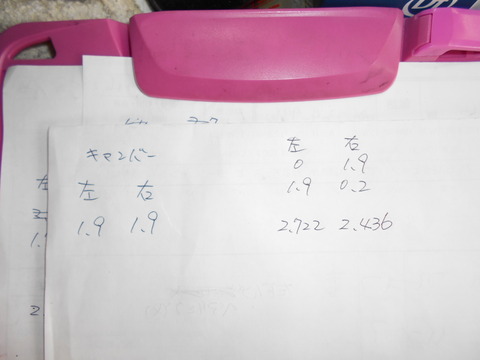 キャンバー
左 右
1.9 1.9
左 右
0 1.9
1.9 0.2
2.722 2.436